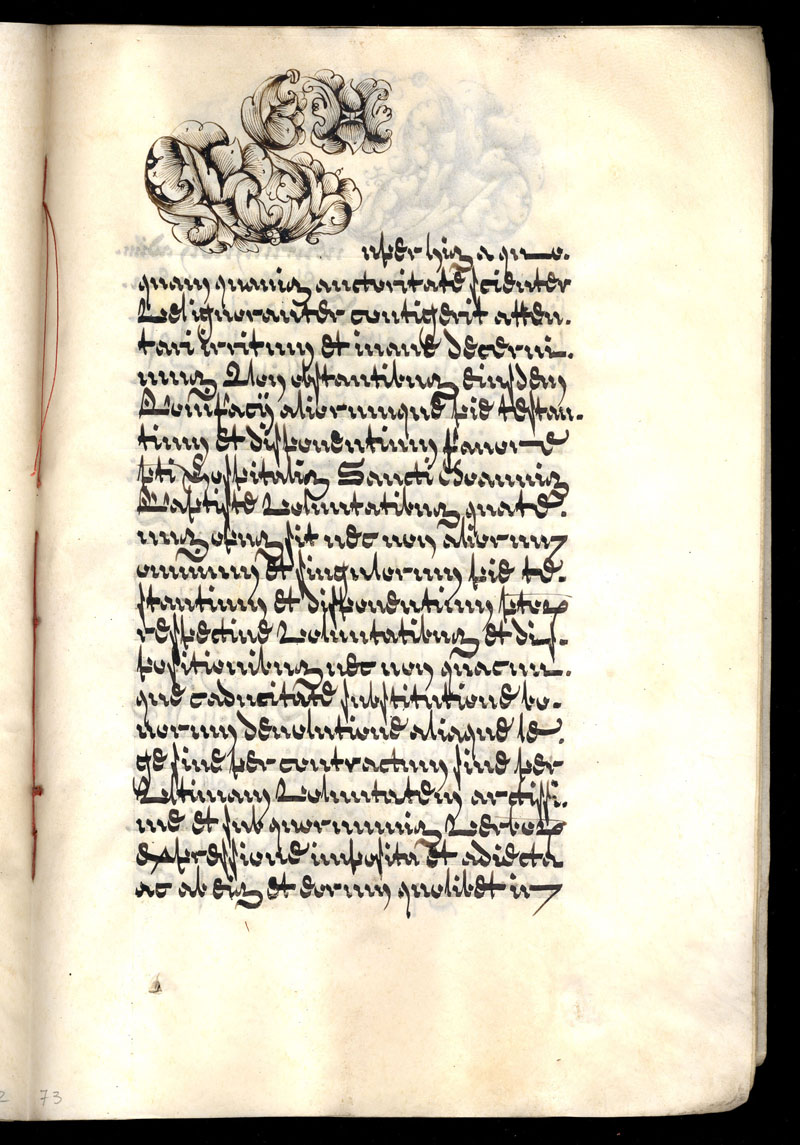 Super his a quo-
quam quavis auctoritate scienter
Vel ignoranter contigerit atten-
tari irritum et inane decerni-
mus Non obstantibus eiusdem
Bonifacij aliorumque pie testan-
tium et disponentium favore
pti Hospitalis Sancti Joannis
Baptiste Voluntatibus quate-
nus opus sit nec non aliorum
omnium et singulorum pie te-
stantium et disponentium ptor
respective Voluntatibus et dis-
positionibus nec non quacun-
que caducitate substitutione bo-
norum devolutione aliaque le-
ge sive per contractum sive per
Ultimam Voluntatem arctissi-
me et sub quorumvis Verbor
expressione imposita et adiecta
ac ab eis et eorum quolibet in
73